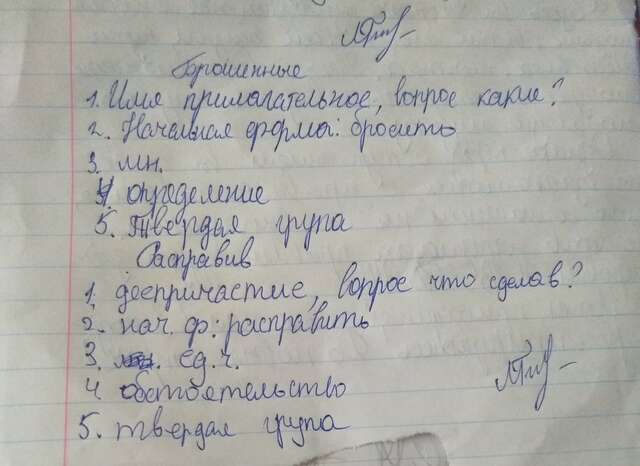 Брошенные
1. Имя прилагательное, вопрос какие?
2. Начальная форма: бросить
3. мн.
4. определение
5. твердая група
Расправив
1. деепричастие, вопрос что сделав?
2. нач. ф: расправить
3. ед.ч.
4 обстоятельство
5. твердая група